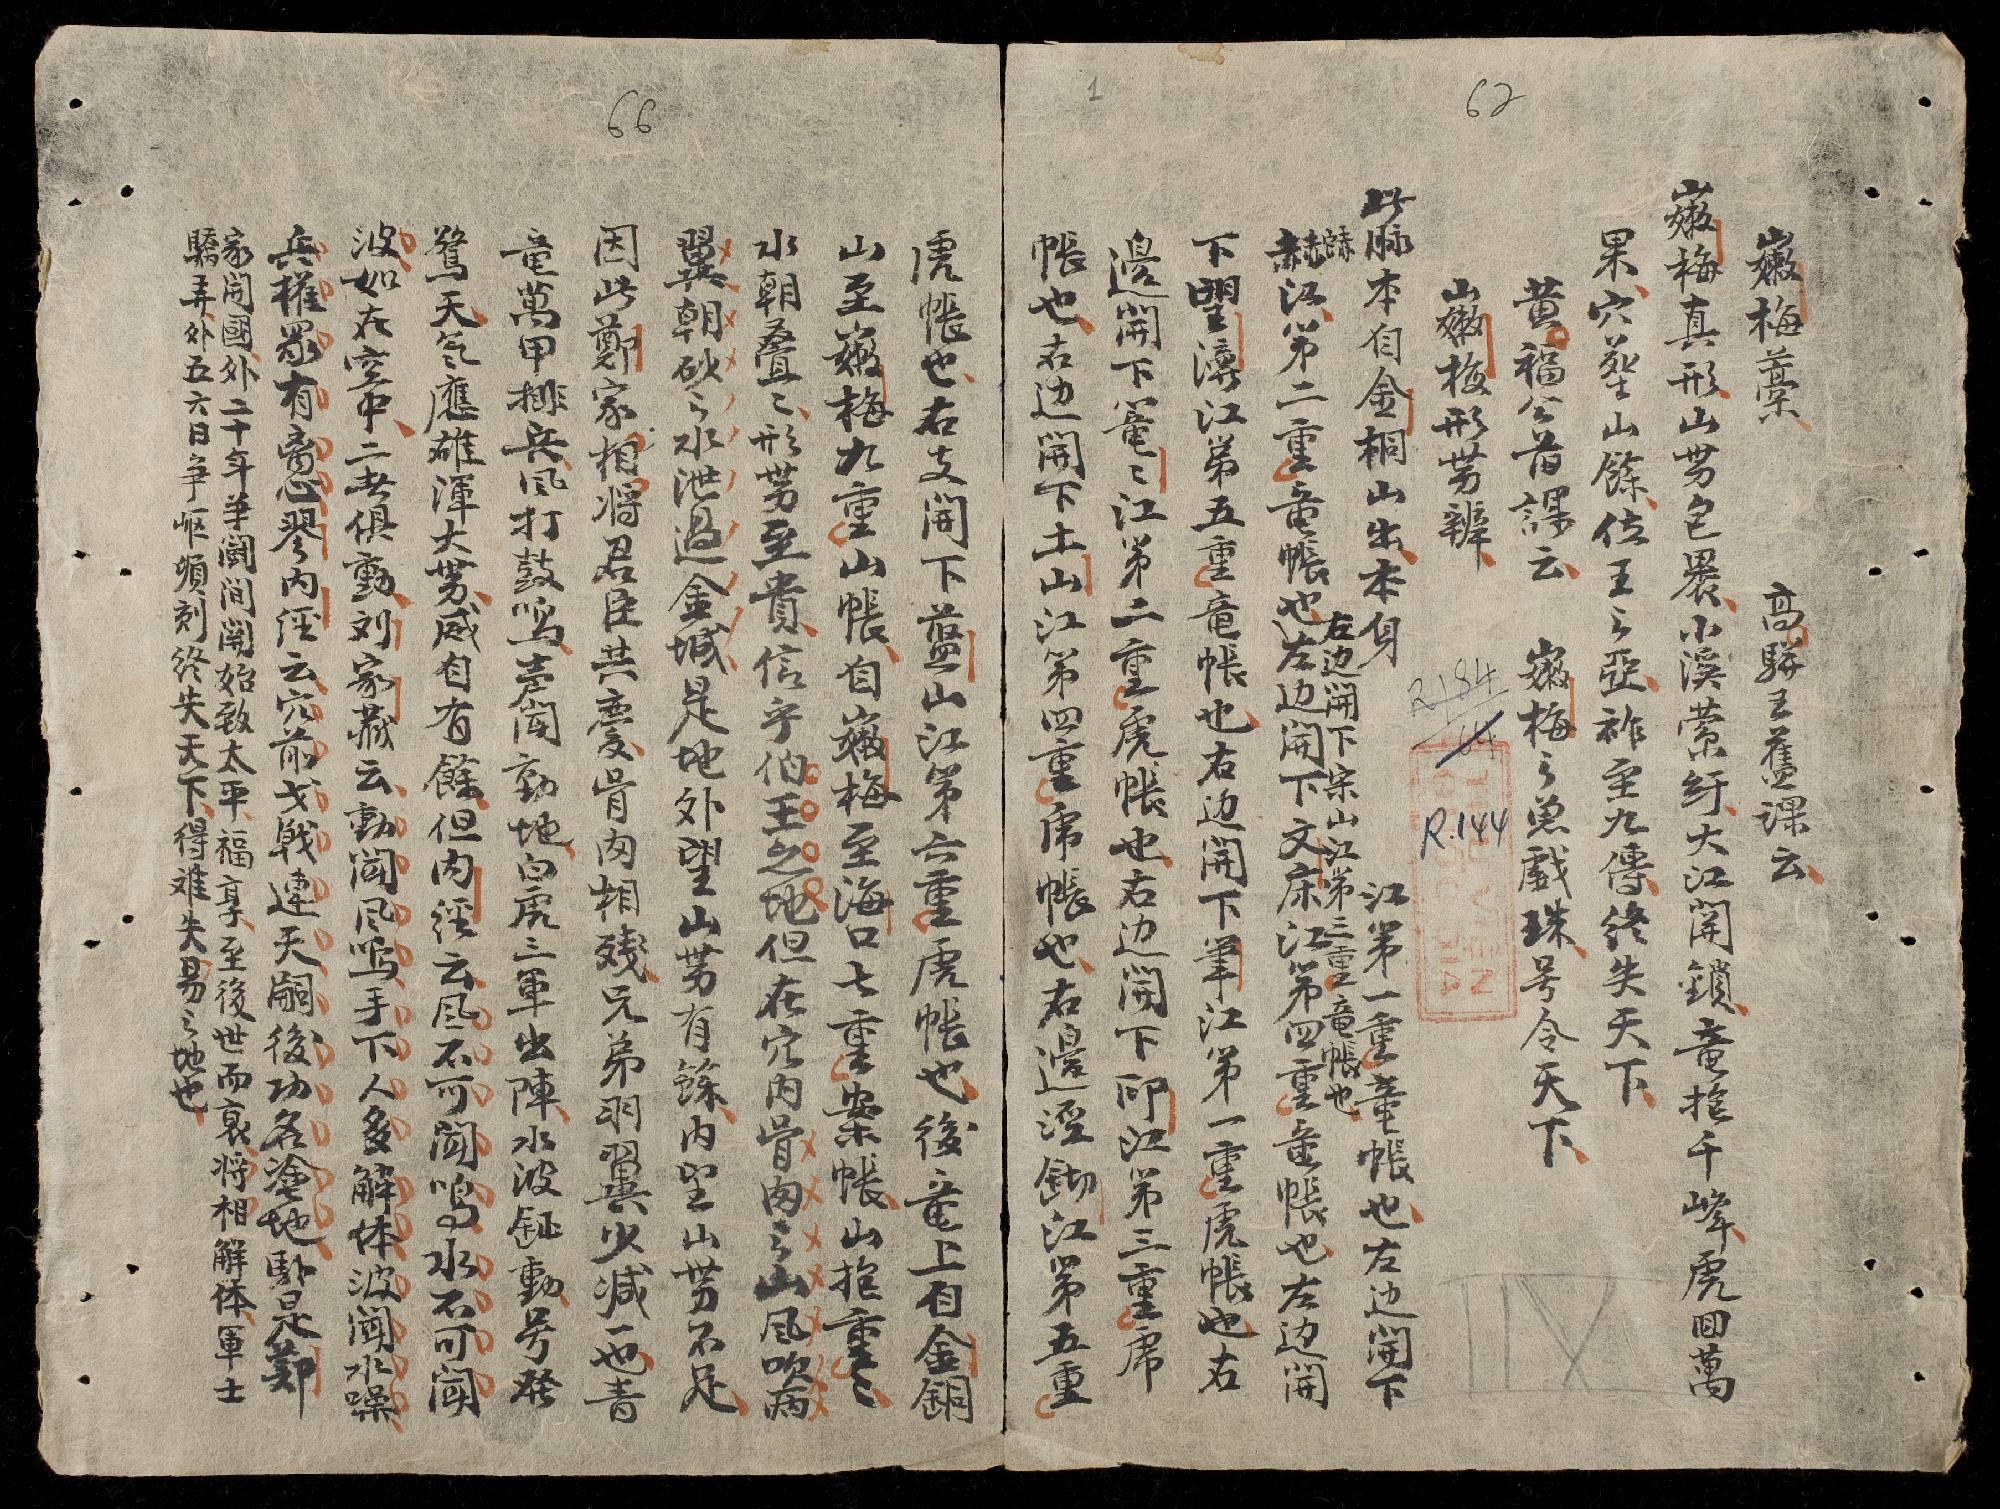 62
1
𡽫梅藁 高駢王舊課云
𡽫梅真形山势包畏小溪縈紆大江開鎖竜抱千峰虎回萬
果穴葬山餘位王之亞祚至九傳終失天下
黄福公首課云 𡽫梅之魚戲珠号令天下
𡽫梅形势辨
此脉本自金桐山出本身 江第一重竜帳也左边開下
赫江第二重竜帳也左边開下宗山江第三重竜帳也左边開下文床江第四重竜帳也左边開
下望瀛江第五重竜帳也右边開下筆江第一重虎帳也右
邊開下篭〻江第二重虎帳也右边開下邱江第三重虎
帳也右边開下土山江第四重虎帳也右邊涇鋤江第五重
R.184
R.144
THƯ VIỆN
66
虎帳也右支開下藍山江第六重虎帳也後竜上自金銅
山至𡽫梅九重山帳自𡽫梅至海口七重案帳山抱重〻
水朝叠〻形势至貴信乎伯王之地但在穴内骨肉之山風吹病
翼朝砂之水泄過金城是地外望山势有餘内望山势不足
因此鄭家相將君臣共慶骨肉相殘兄弟羽翼少减也青
竜萬甲排兵風打鼓鳴声聞動地白虎三軍出陣水波鉦動号發
驚天气應雄渾大势威自有餘但内經云風不可聞鳴水不可聞
波如在空中二者俱動刘家藏云動聞風鳴手下人多解体波聞水噪
兵權眾有意心廖内經云穴前戈戟連天嗣後功名塗地卧是鄭
家開國外二十年爭闘间開始致太平福享至後世而衰將相解体軍士
驕弄外五六日争岖頃刻終失天下得难失易之地也